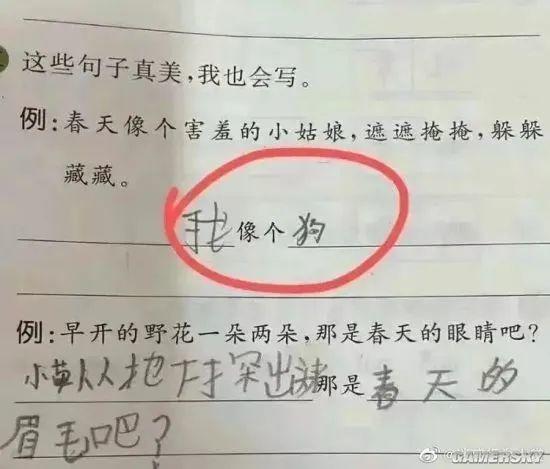 这些句子真美，我也会写。
例：春天像个害羞的小姑娘，遮遮掩掩，躲躲
藏藏。
我像个狗
例：早开的野花一朵两朵，那是春天的眼睛吧？
小草从地探出 那是春天的
眉毛吧？
GAMERSKY